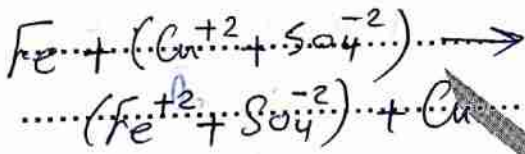 Fe + (Cu⁺² + SO₄⁻²) →
(Fe⁺² + SO₄⁻²) + Cu